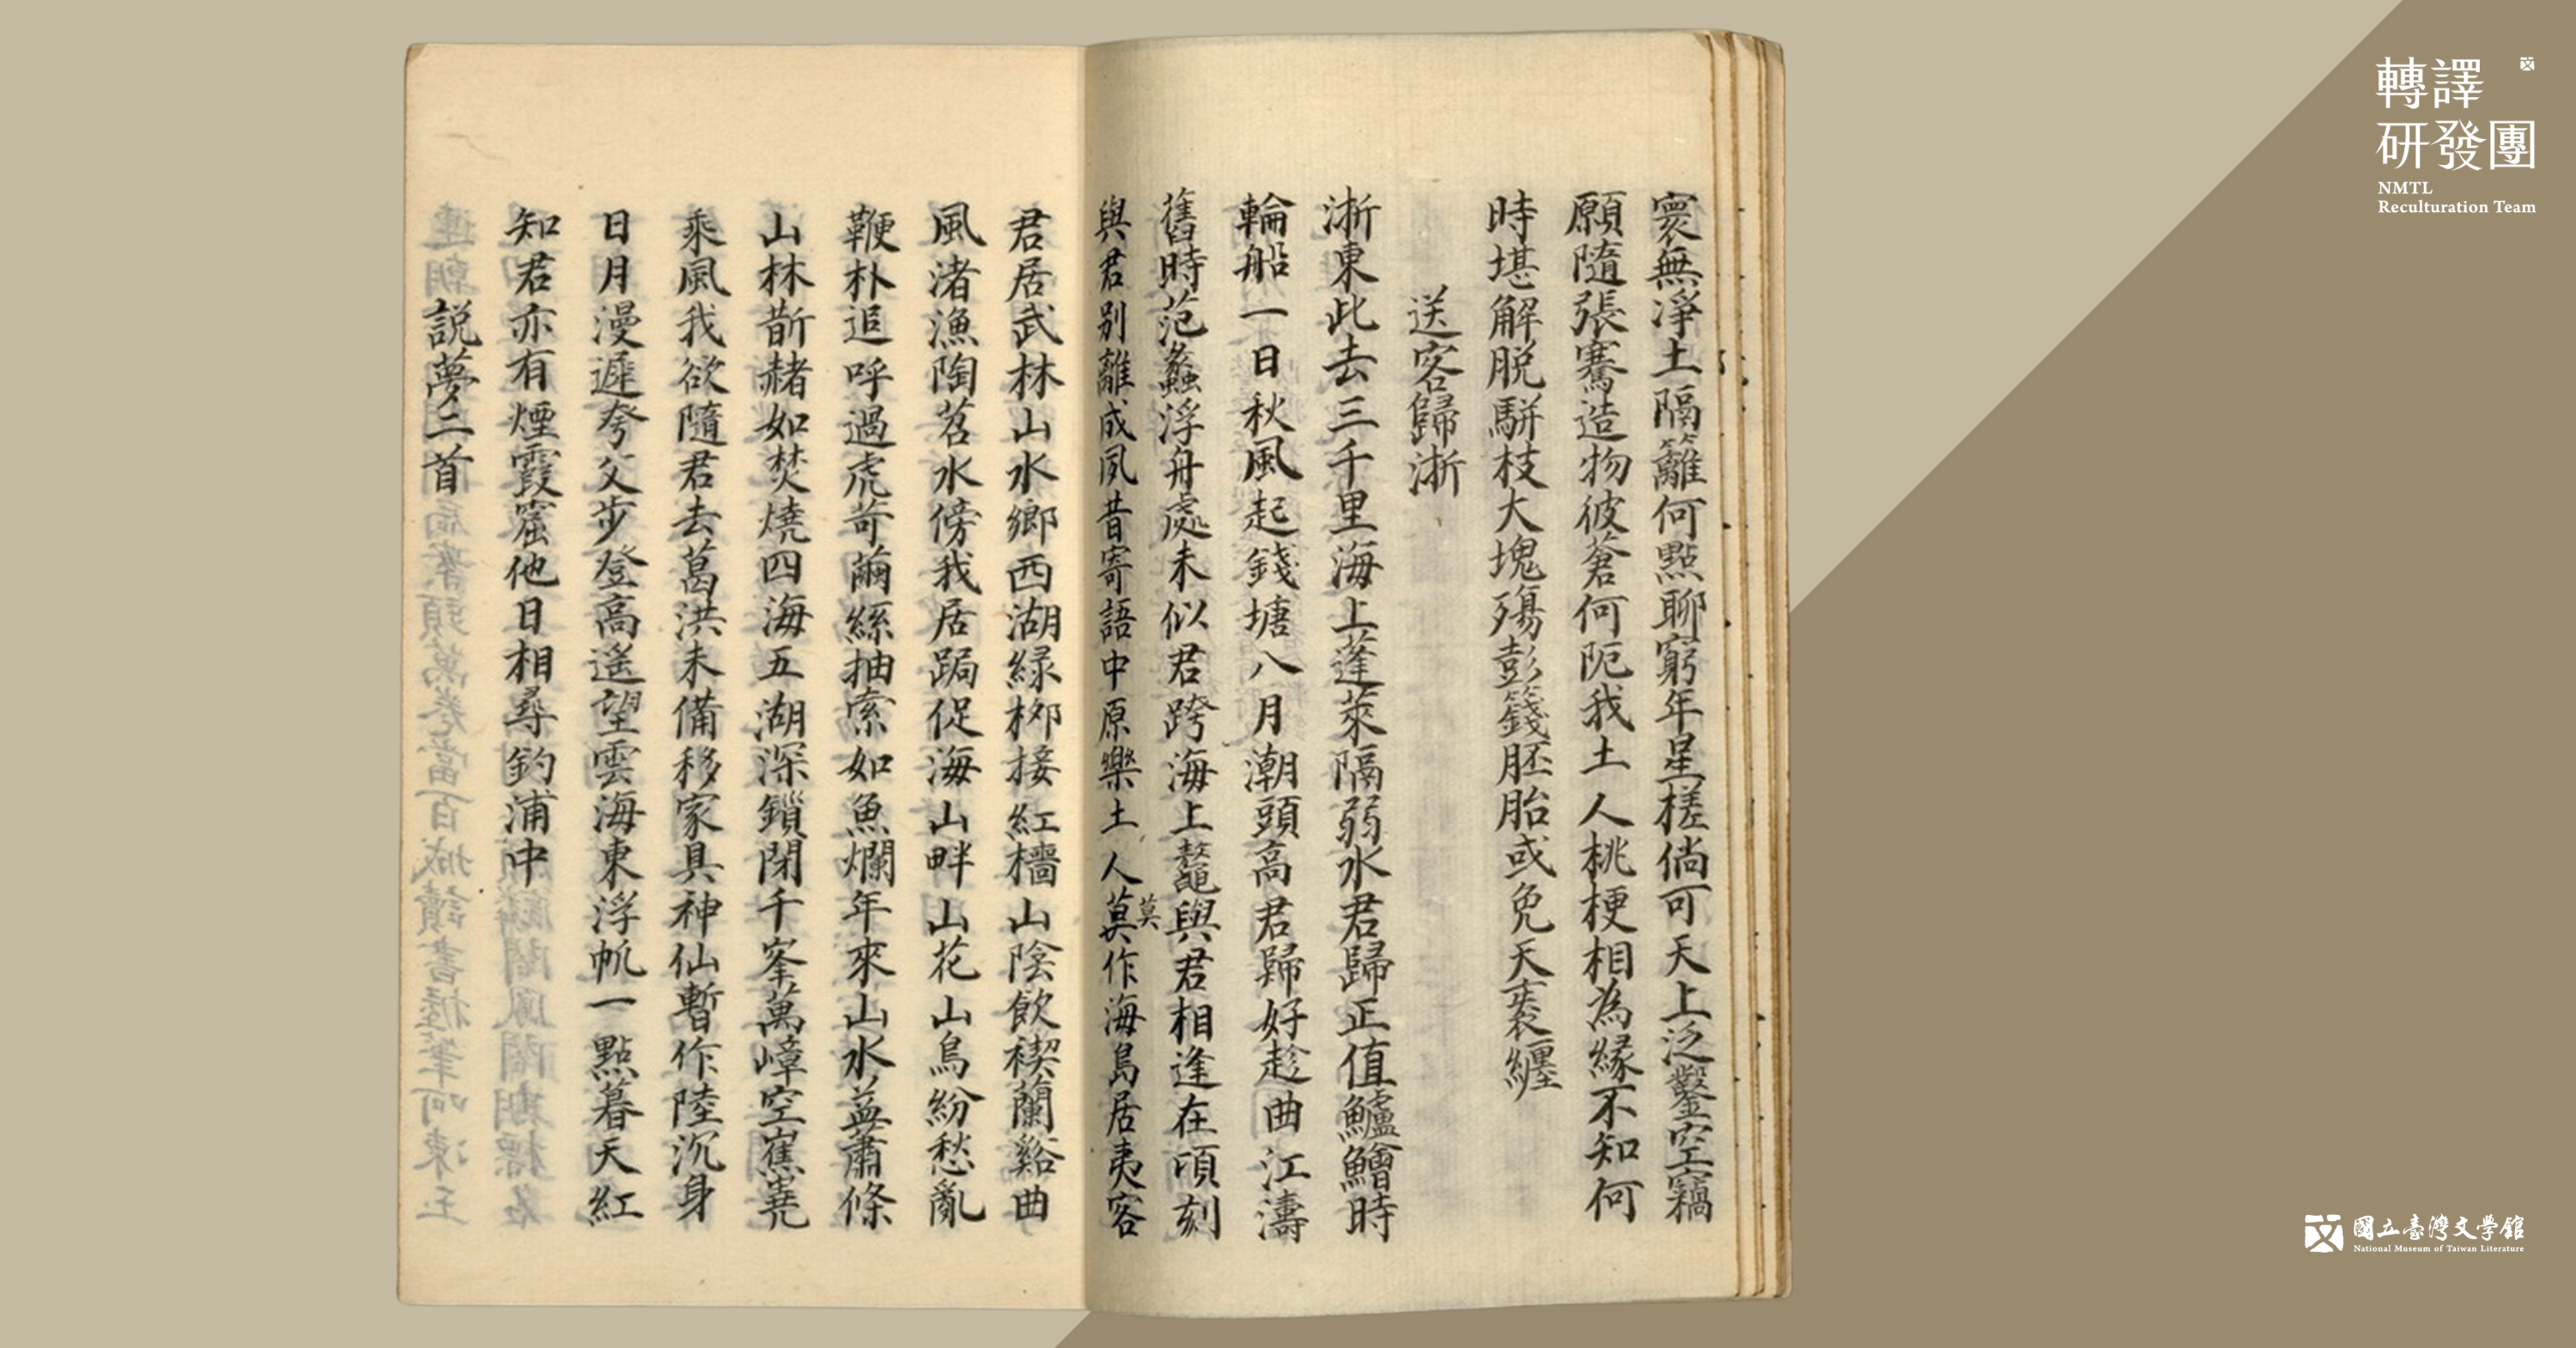 寰無淨土隔籬何點聊窮年星槎倘可天上泛鑿空竊
願隨張騫造物彼蒼何阨我土人桃梗相為緣不知何
時堪解脫駢枝大塊殤彭籛胚胎或免天袠纏
送客歸淅
淅東此去三千里海上蓬萊隔弱水君歸正值鱸鱠時
輪船一日秋風起錢塘八月潮頭高君歸好趁曲江濤
舊時范蠡浮舟處未似君跨海上鼇與君相逢在頃刻
與君別離成夙昔寄語中原樂土人莫作海島居夷客
莫
君居武林山水鄉西湖緑栁接紅檣山陰飲禊蘭谿曲
風渚漁陶苕水傍我居跼促海山畔山花山鳥紛愁亂
鞭朴追呼過虎苛繭絲抽索如魚爛年來山水益蕭條
山林斮赭如焚燒四海五湖深鎖閉千峯萬嶂空寯嶤
乘風我欲隨君去葛洪未備移家具神仙暫作陸沉身
日月漫遲夸父步登高遙望雲海東浮帆一點暮天紅
知君亦有煙霞窟他日相尋釣浦中
説夢二首
轉譯
研發團
NMTL
Reculturation Team
國立臺灣文學館
National Museum of Taiwan Literature